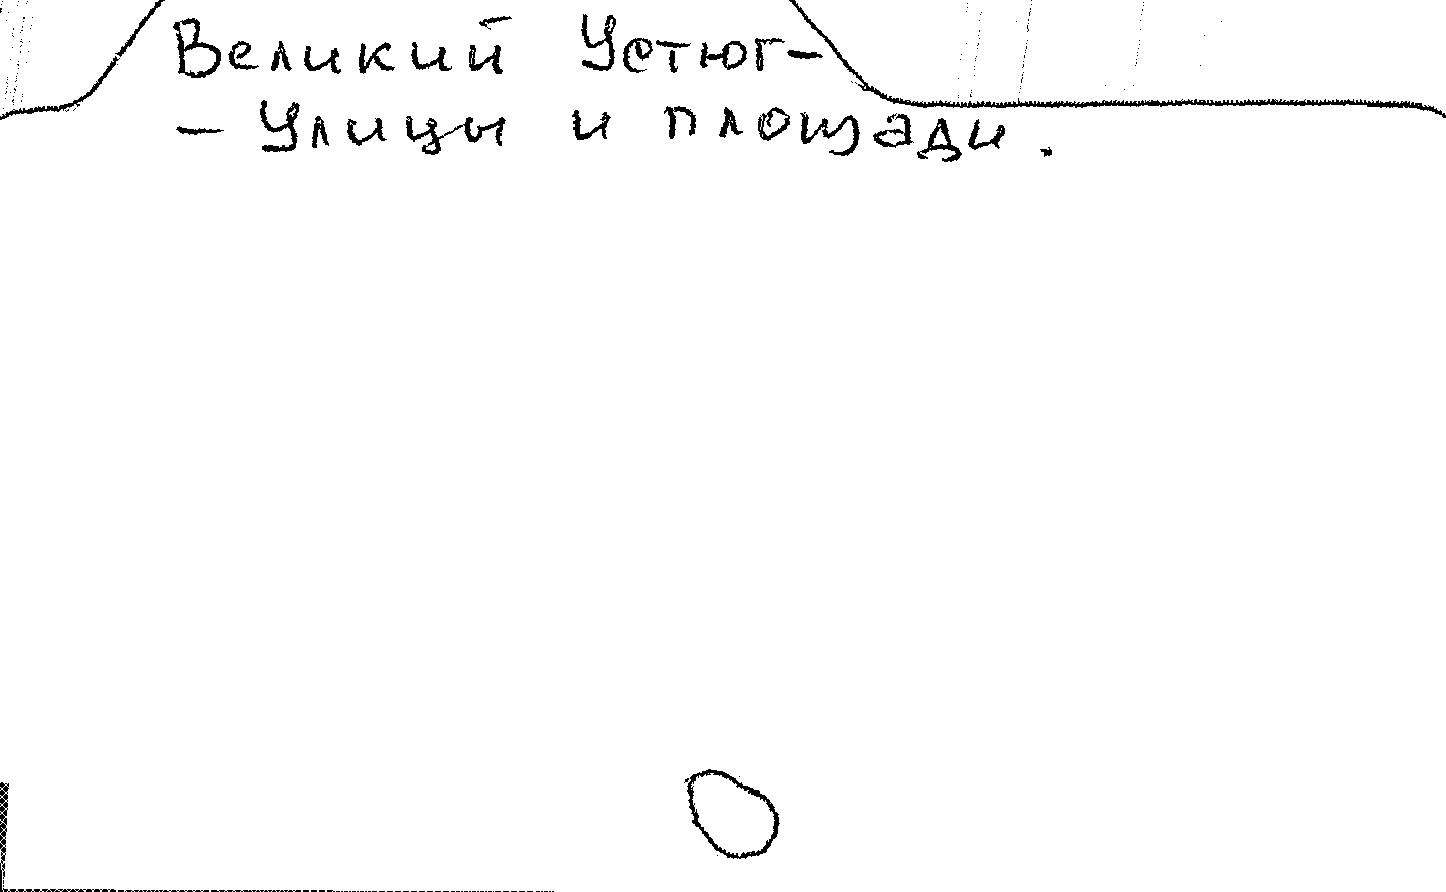 Великий Устюг-
- Улицы и площади.